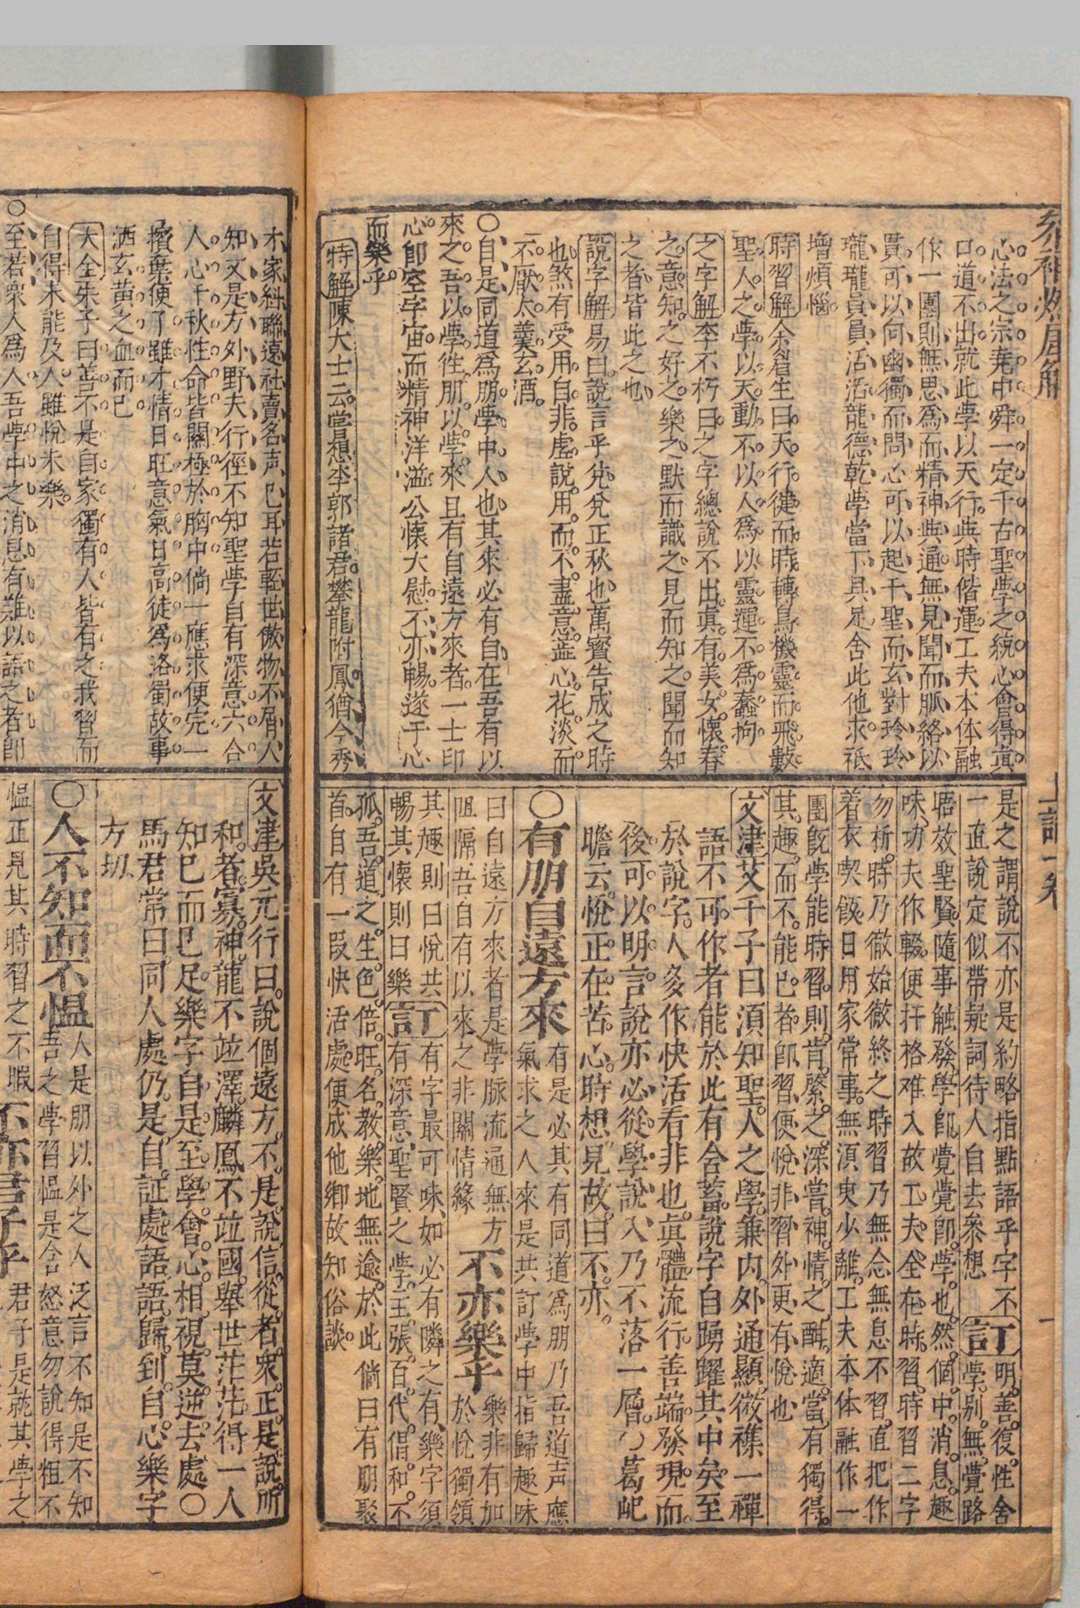 心法之宗堯中舜一定千古聖學之統心會得真
口道不出就此學以天行與時偕運工夫本体融
作一團則無思為而精神與通無見聞而脈絡以
貫可以向幽獨而問心可以起千聖而玄對玲玲
瓏瓏員員活活龍德乾學當下具足舍此他求秪
增煩惱
時習解余眉生曰天行健而時轉鳥機靈而飛數
聖人之學以天動不以人為以靈運不為蠢拘
之字解李不朽曰之字總說不出真有美女懷春
之意知之好之樂之默而識之見而知之聞而知
之者皆此之也
說字解易曰說言乎兌兌正秋也萬寶告成之時
也煞有受用自非虛說用而不盡意蕋心花淡而
不厭太羹玄酒
○自是同道為朋學中人也其來必有自在吾有以
來之吾以學徃朋以學來且有自遠方來者一士印
心即空字宙而精神洋溢公懷大慰不亦暢遂于心
而樂乎
特解陳大士云嘗想李郭諸君攀龍附鳳猶今秀
是之謂說不亦是約略指點語乎字不
一直說定似帶疑詞待人自去叅想
訂明善復性舍
學別無覺路
唔效聖賢隨事触發學即覺覺即學也然個中消息趣
味功夫作輟便扞格难入故工夫全在時習時習二字
勿析時乃徹始徹終之時習乃無念無息不習直把作
着衣喫飯日用家常事無湏臾少離工夫本体融作一
團旣學能時習則肯綮之深嘗神情之酣適當有獨得
其趣而不能已者即習便悅非習外更有悅也
文津艾千子曰湏知聖人之學兼内外通顯微襍一禪
語不可作者能於此有舍蓄說字自踴躍其中矣至
於說字人多作快活看非也真體流行善端發現而
後可以明言說亦必從學說入乃不落一層葛屺
瞻云悅正在苦心時想見故曰不亦
○有朋自遠方來
有是必其有同道為朋乃吾道声應
氣求之人來是共訂學中指歸趣味
曰自遠方來者是學脈流通無方
阻隔吾自有以來之非關情緣
不亦樂乎
樂非有加
於悅獨領
其趣則曰悅共
暢其懷則曰樂
訂有字最可味如必有隣之有樂字須
有深意聖賢之學主張百代倡和不
孤吾道之生色倍旺名教樂地無逾於此倘曰有朋聚
首自有一段快活處便成他鄉故知俗談
才家紏聯遠社賣名声已耳若輕世傲物不屑人
知又是方外野夫行徑不知聖學自有深意六合
人心千秋性命皆關極於胸中倘一應求便完一
擯棄便了雖才情日旺意氣日高徒為洛蜀故事
洒玄黃之血而已
大全朱子曰善不是自家獨有人皆有之我習而
自得未能及人雖悅未樂
○至若衆人為人吾學中之消息有難以諒之者即
文津吳亢行曰說個遠方不是說信從者衆正是說所
和者寡神龍不竝澤麟鳳不竝國舉世茫茫得一人
知巳而巳足樂字自是至學會心相視莫逆去處○
馬君常曰同人處仍是自証處語語歸到自心樂字
方切
○人不知而不慍
人是朋以外之人泛言不知是不知
吾之學習慍是含怒意勿說得粗不
慍正見其時習之不暇
不亦君子乎
君子是就其學之